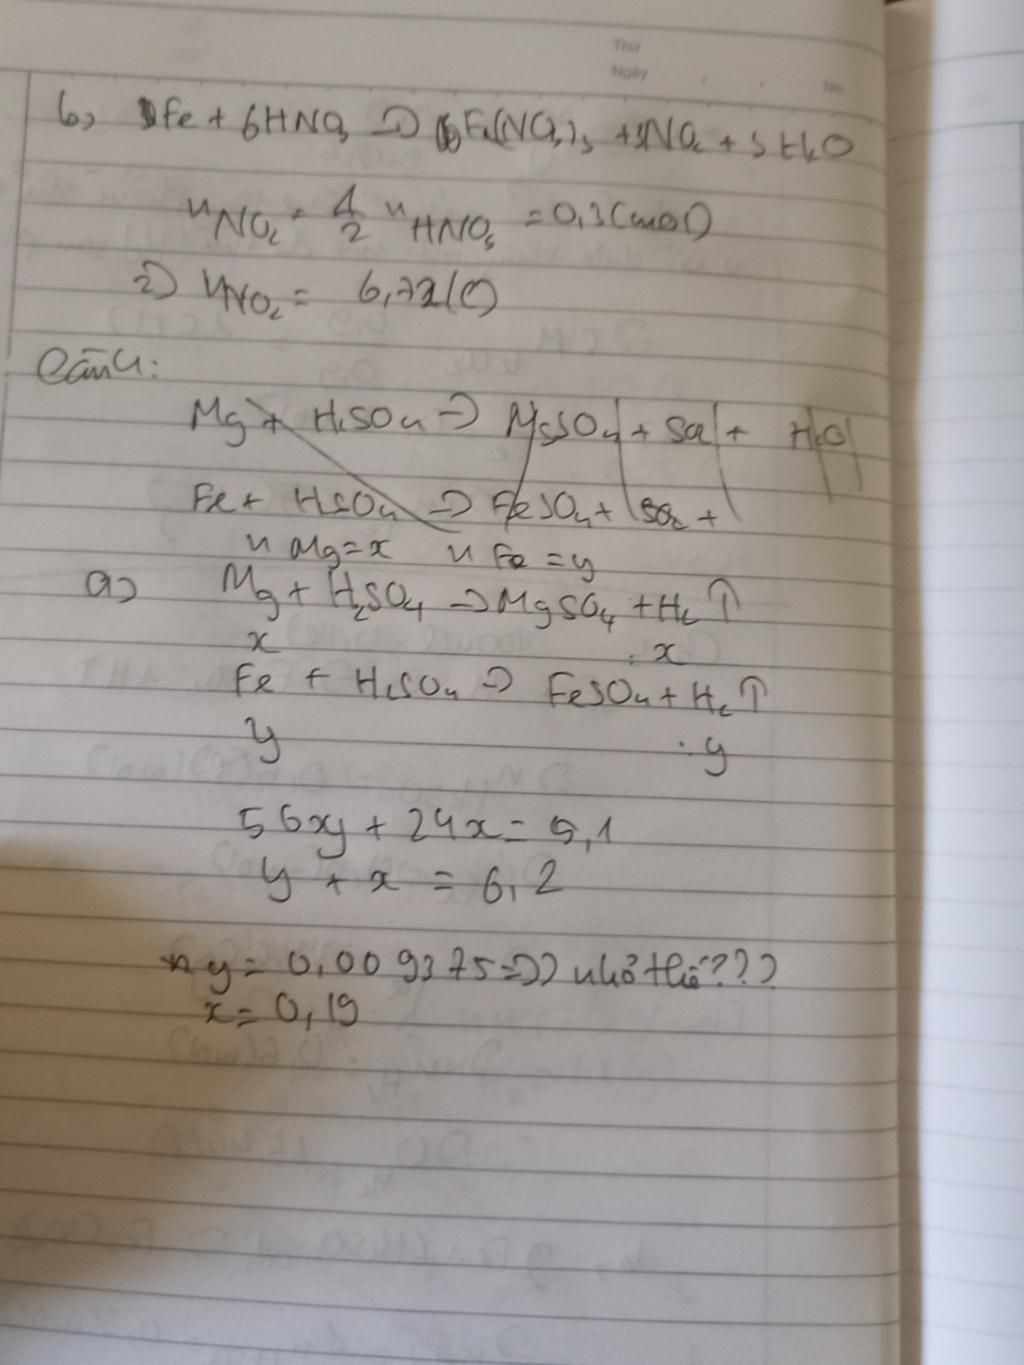 Thứ
Ngày
No.
b, Fe + 6HNO3 => Fe(NO3)3 + 3NO2 + 3H2O
nNO2 = 1/2 nHNO3 = 0,3(mol)
=> VNO2 = 6,72(l)
Câu4:
Mg + H2SO4 => MgSO4 + SO2 + H2O
Fe + H2SO4 => FeSO4 + SO2 +
n Mg=x n Fe = y
a, Mg + H2SO4 -> MgSO4 + H2 ↑
x x
Fe + H2SO4 => FeSO4 + H2 ↑
y y
56y + 24x = 5,1
y + x = 0,2
y = 0,009375 => nhỏ thế???
x = 0,19